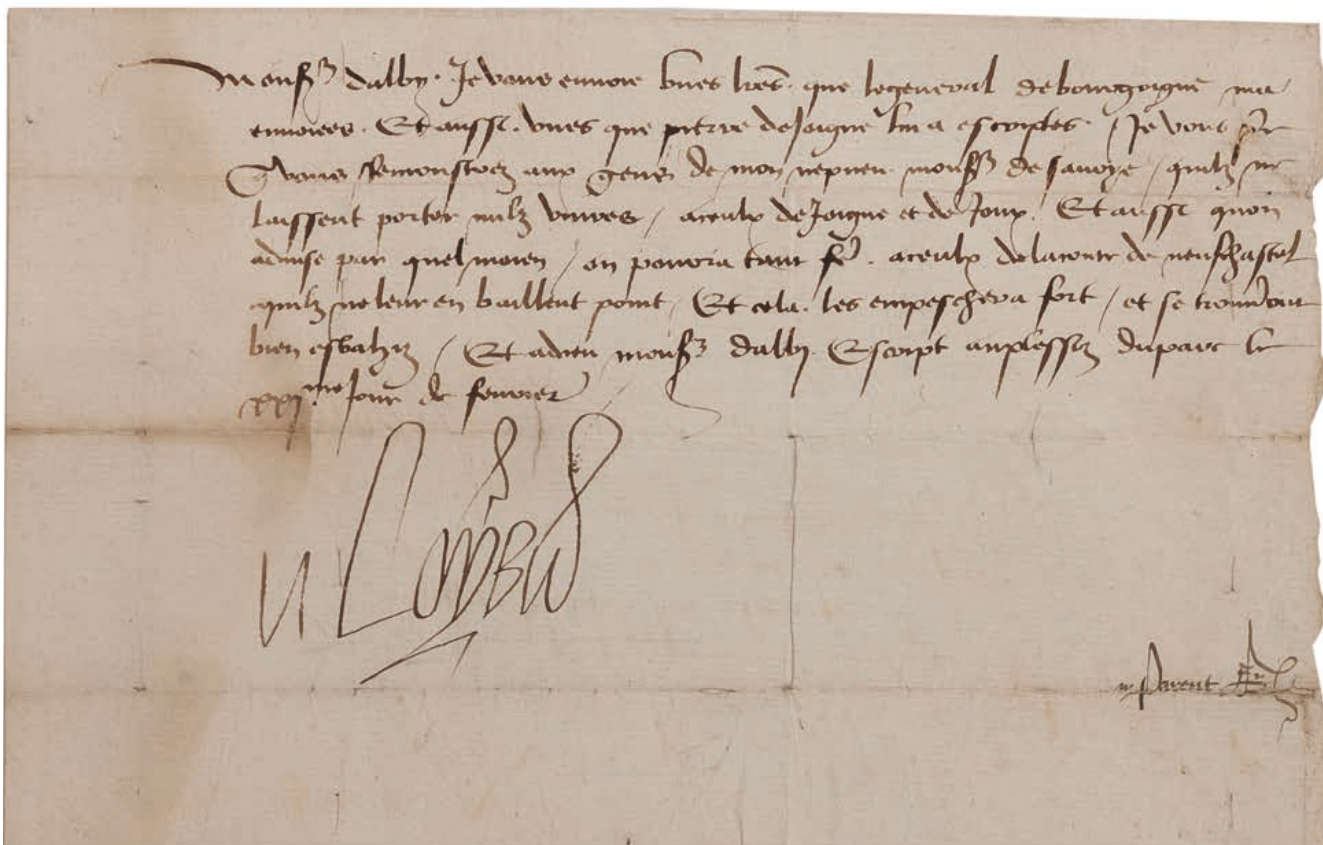 Monsr dalby. Je vous envoie unes lres. que legeneral debourgoigne ma
envoiees. Et aussi. unes que pierre deJoigne lui a escriptes. / Je vous pr
que vous Remonstrez aux gens de mon nepveu monsr de savoye / quilz ne
laissent porter nulz vivres / aceulx deJoigne et de Joux. Et aussi quon
advise par quel moien / on pourra tant fe. aceulx delaconte de neufchastel
quilz ne leur en baillent point / Et cela. les empeschera fort / et se trouveront
bien esbahiz / Et adieu monsr dalby. Escript auplessiz duparc le
xxj me Jour de fevrier
Loys
Parent